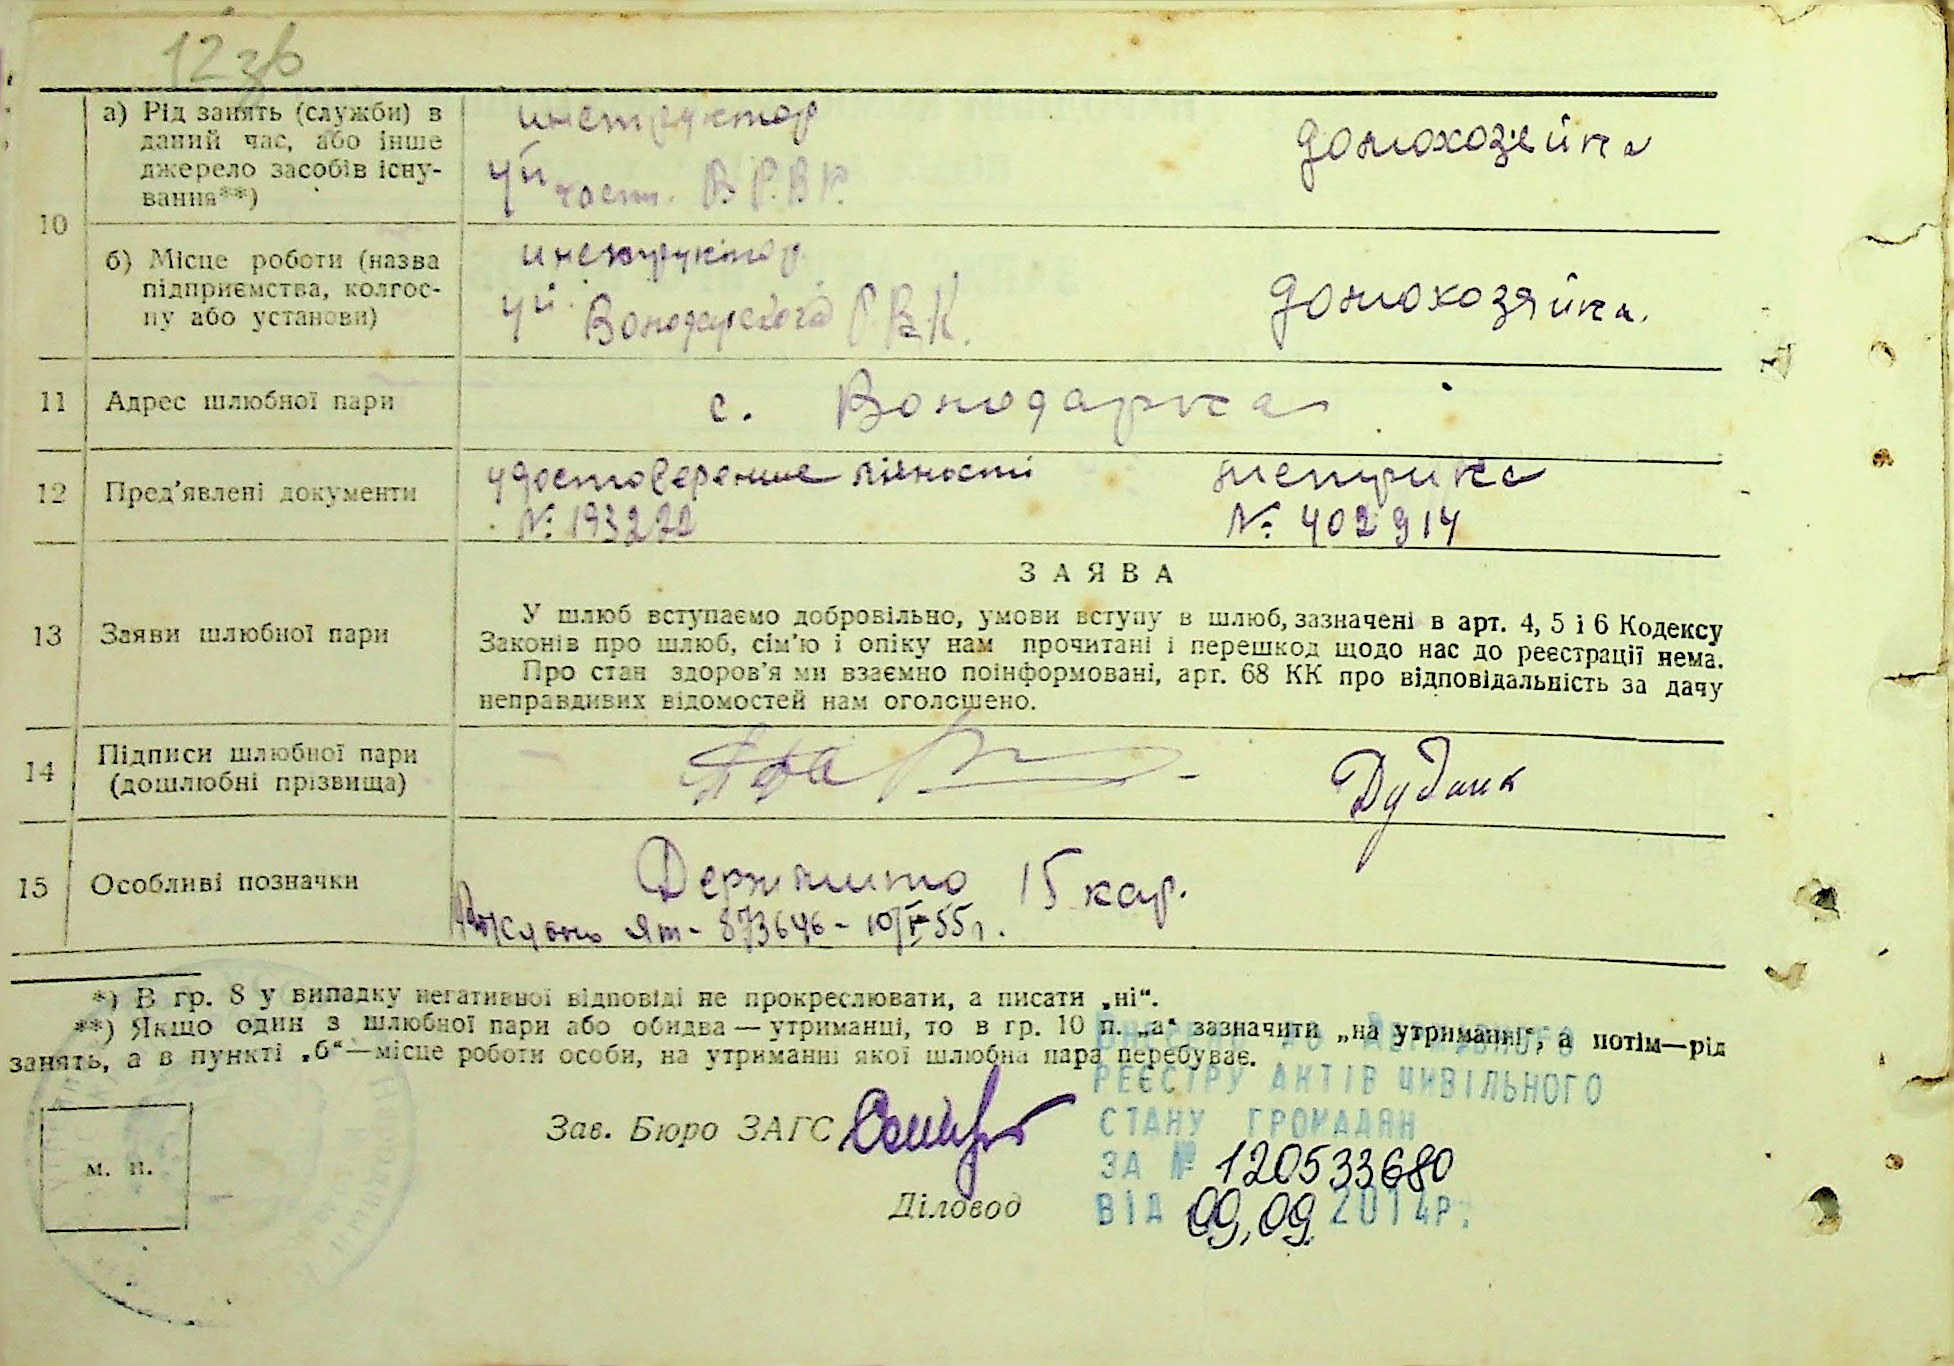 12 зв
10
а) Рід занять (служби) в
даний час, або інше
джерело засобів існу-
вання**)
инструктор
уй част. В Р.В К.
домохозейка
б) Місце роботи (назва
підприємства, колгос-
пу або установи)
инструктор
Володарского Р.В.К.
домохозяйка.
11
Адрес шлюбної пари
с. Володарка
12
Пред'явлені документи
удостоверение лічності
№ 193272
метрика
№ 402914
13
Заяви шлюбної пари
ЗАЯВА
У шлюб вступаємо добровільно, умови вступу в шлюб, зазначені в арт. 4, 5 і 6 Кодексу
Законів про шлюб, сім'ю і опіку нам прочитані і перешкод щодо нас до реєстрації нема.
Про стан здоров'я ми взаємно поінформовані, арт. 68 КК про відповідальність за дачу
неправдивих відомостей нам оголошено.
14
Підписи шлюбної пари
(дошлюбні прізвища)
15
Особливі позначки
Держмито 15 кар.
ЯТ- 873646 - 10/V-55 г.
*) В гр. 8 у випадку негативної відповіді не прокреслювати, а писати „ні“.
**) Якщо один з шлюбної пари або обидва — утриманці, то в гр. 10 п. „а“ зазначити „на утриманні“, а потім—рід
занять, а в пункті „б“—місце роботи особи, на утриманні якої шлюбна пара перебуває.
ДО ДЕРЖАВНОГО
РЕЄСТРУ АКТІВ ЦИВІЛЬНОГО
СТАНУ ГРОМАДЯН
ЗА № 120533680
ВІД 09.09. 2014р.
Зав. Бюро ЗАГС
Діловод
м. п.